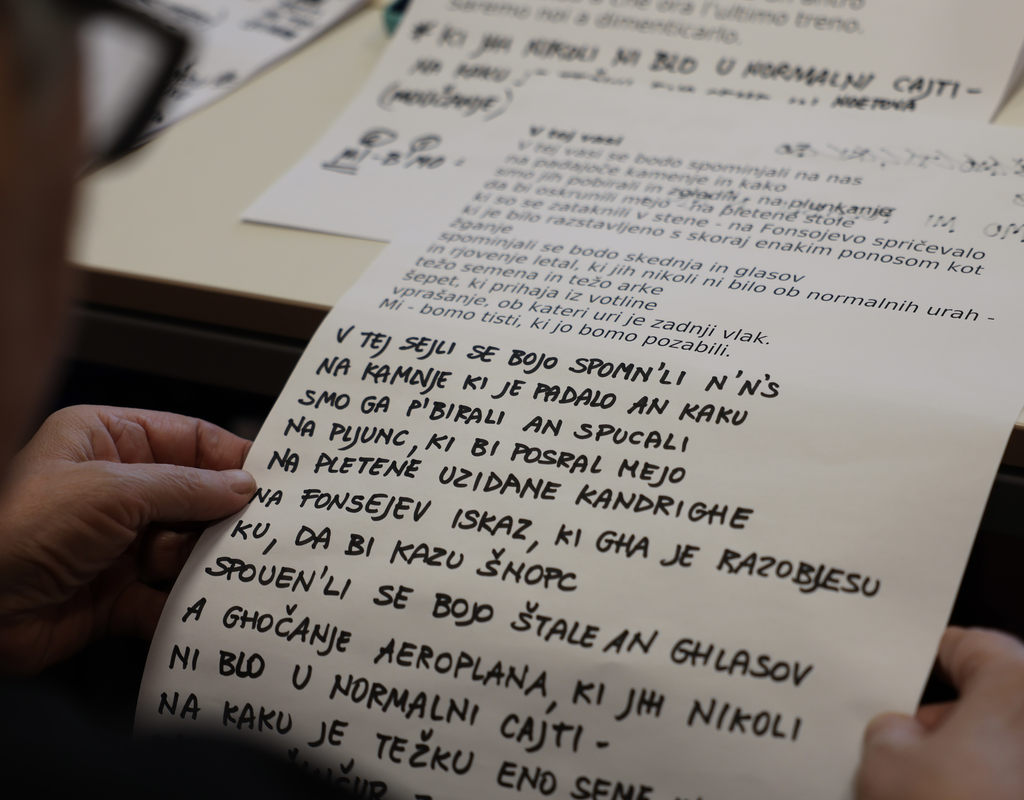 a che ora l'ultimo treno.
Saremo noi a dimenticarlo.
* KI JIH NIKOLI NI BLO U NORMALNI CAJTI-
NA KAKU
NOETOVA
(MOUČANJE)
V tej vasi
V tej vasi se bodo spominjali na nas
na padajoče kamenje in kako
smo jih pobirali in zgladili - na plunkanje
da bi oskrunili mejo - na pletene stole
ki so se zataknili v stene - na Fonsojevo spričevalo
ki je bilo razstavljeno s skoraj enakim ponosom kot
žganje
spominjali se bodo skednja in glasov
in rjovenje letal, ki jih nikoli ni bilo ob normalnih urah -
težo semena in težo arke
šepet, ki prihaja iz votline
vprašanje, ob kateri uri je zadnji vlak.
Mi - bomo tisti, ki jo bomo pozabili.
V TEJ SEJLI SE BOJO SPOMN'LI N'N'S
NA KAMNJE KI JE PADALO AN KAKU
SMO GA P'BIRALI AN SPUCALI
NA PLJUNC, KI BI POSRAL MEJO
NA PLETENE UZIDANE KANDRIGHE
NA FONSEJEV ISKAZ, KI GHA JE RAZOBJESU
KU, DA BI KAZU ŠNOPC
SPOUEN'LI SE BOJO ŠTALE AN GHLASOV
A GHOČANJE AEROPLANA, KI JIH NIKOLI
NI BLO U NORMALNI CAJTI -
NA KAKU JE TEŽKU ENO SEME